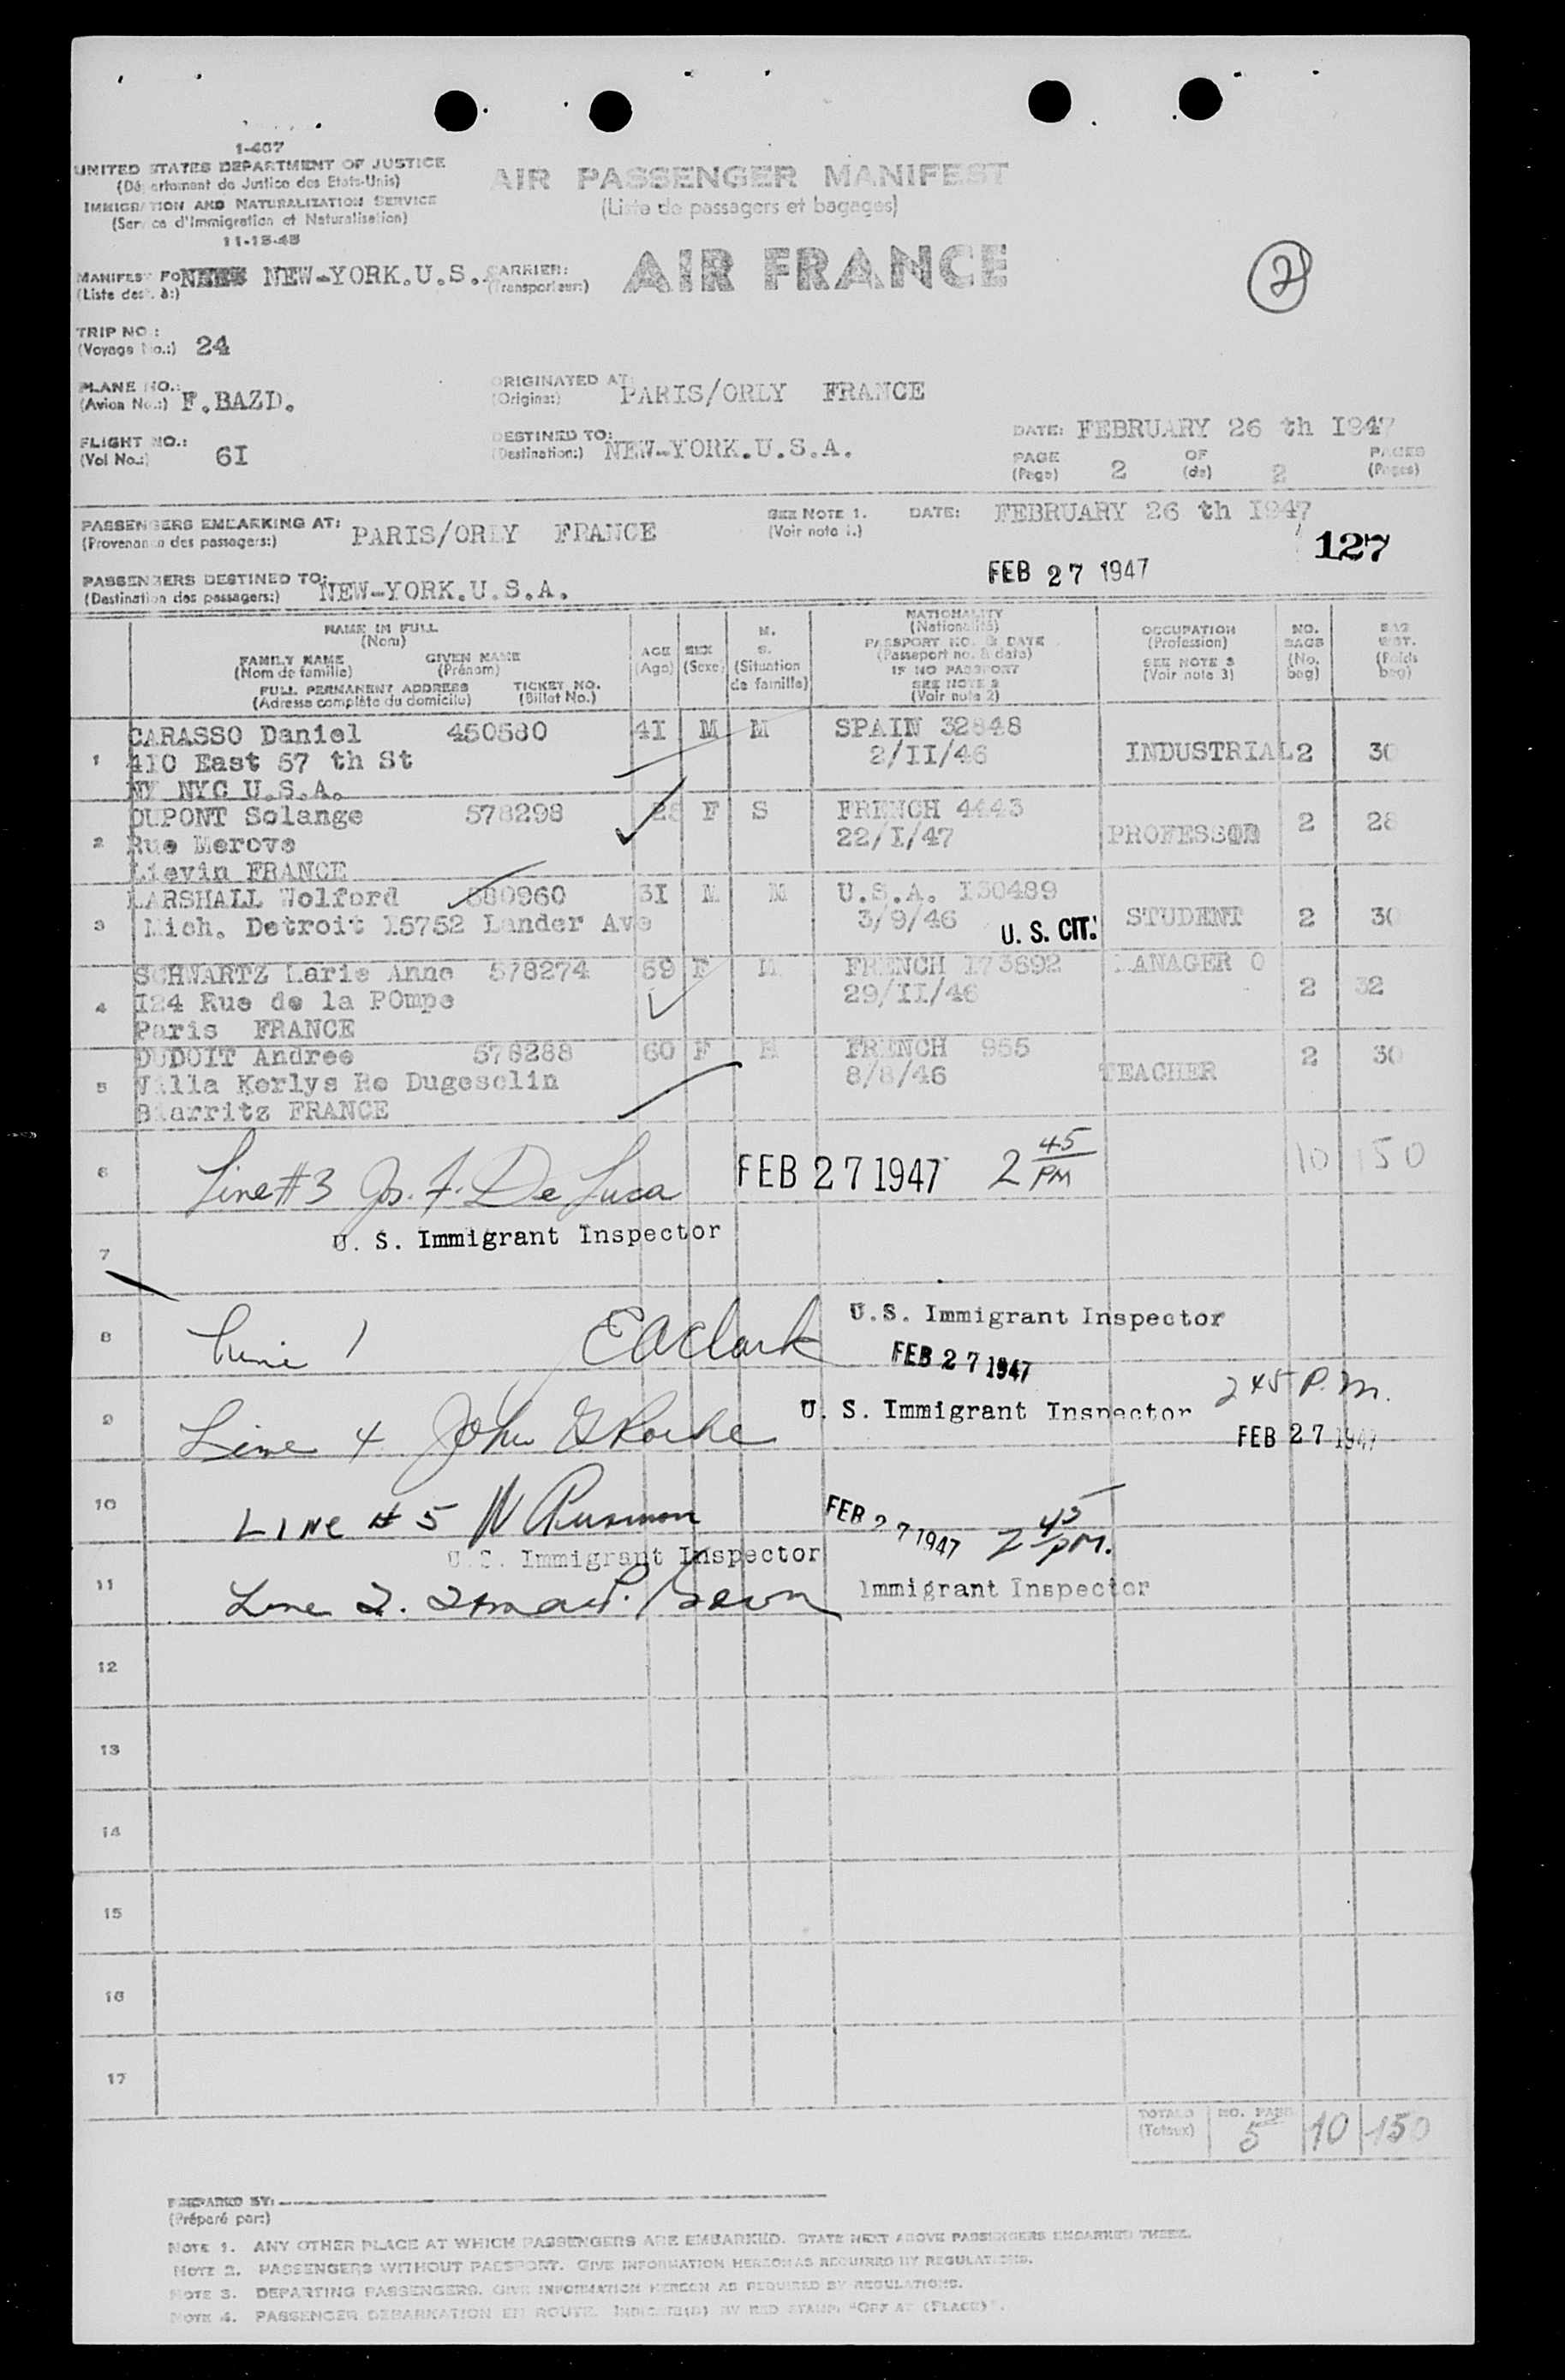 1-467
UNITED STATES DEPARTMENT OF JUSTICE
(Département de Justice des Etats-Unis)
IMMIGRATION AND NATURALIZATION SERVICE
(Service d'Immigration et Naturalisation)
11-15-45
AIR PASSENGER MANIFEST
(Liste de passagers et bagages)
MANIFEST FO NEW-YORK.U.S. CARRIER: AIR FRANCE
(Liste dest. à:) (Transporteur:)
2
TRIP NO.:
(Voyage No.:) 24
PLANE NO.:
(Avion No.:) F.BAZD.
ORIGINATED AT: PARIS/ORLY FRANCE
(Origine:)
FLIGHT NO.:
(Vol No.:) 6I
DESTINED TO: NEW-YORK.U.S.A.
(Destination:)
DATE: FEBRUARY 26 th I947
PAGE 2 OF 2 PAGES
(Page) (de) (Pages)
PASSENGERS EMBARKING AT: PARIS/ORLY FRANCE
(Provenance des passagers:)
SEE NOTE 1. DATE: FEBRUARY 26 th I947
(Voir note 1.)
127
FEB 27 1947
PASSENGERS DESTINED TO: NEW-YORK.U.S.A.
(Destination des passagers:)
NAME IN FULL
(Nom)
FAMILY NAME GIVEN NAME
(Nom de famille) (Prénom)
FULL PERMANENT ADDRESS TICKET NO.
(Adresse complète du domicile) (Billet No.)
AGE
(Age)
SEX
(Sexe)
M.
S.
(Situation
de famille)
NATIONALITY
(Nationalité)
PASSPORT NO. & DATE
(Passeport no. & date)
IF NO PASSPORT
SEE NOTE 2
(Voir note 2)
OCCUPATION
(Profession)
SEE NOTE 3
(Voir note 3)
NO.
BAGS
(No.
bag)
BAG
WGT.
(Poids
bag)
1 CARASSO Daniel 450580 4I M M SPAIN 32848 INDUSTRIAL 2 30
410 East 57 th St 2/II/46
NY NYC U.S.A.
2 DUPONT Solange 578298 28 F S FRENCH 4443 PROFESSOR 2 28
Rue Merove 22/I/47
Lievin FRANCE
3 MARSHALL Wolford 580960 3I M M U.S.A. I30489 STUDENT 2 30
Mich. Detroit 15752 Lander Ave 3/9/46 U. S. CIT.
4 SCHWARTZ Marie Anne 578274 59 F M FRENCH 173692 MANAGER O 2 32
I24 Rue de la POmpe 29/II/46
Paris FRANCE
5 DUDOIT Andree 578288 60 F FRENCH 955 TEACHER 2 30
Villa Kerlys Re Dugesclin 8/8/46
Biarritz FRANCE
6 Line #3 Jos. F. De Luca FEB 27 1947 2 45 PM 10 150
7 U. S. Immigrant Inspector
8 Line 1 EAClark U.S. Immigrant Inspector
FEB 27 1947
9 Line 4 John G Rorke U. S. Immigrant Inspector 2 45 P.M.
FEB 27 1947
10 LINE # 5 FEB 27 1947 2 45 PM.
U.S. Immigrant Inspector
11 Line 2. Immigrant Inspector
12
13
14
15
16
17
TOTALS NO. PASS 5 10 150
(Totaux)
PREPARED BY:
(Préparé par:)
NOTE 1. ANY OTHER PLACE AT WHICH PASSENGERS ARE EMBARKED. STATE NEXT ABOVE PASSENGERS EMBARKED THERE.
NOTE 2. PASSENGERS WITHOUT PASSPORT. GIVE INFORMATION HEREON AS REQUIRED BY REGULATIONS.
NOTE 3. DEPARTING PASSENGERS. GIVE INFORMATION HEREON AS REQUIRED BY REGULATIONS.
NOTE 4. PASSENGER DEBARKATION EN ROUTE. INDICATE(D) BY RED STAMP: "OFF AT (PLACE)".